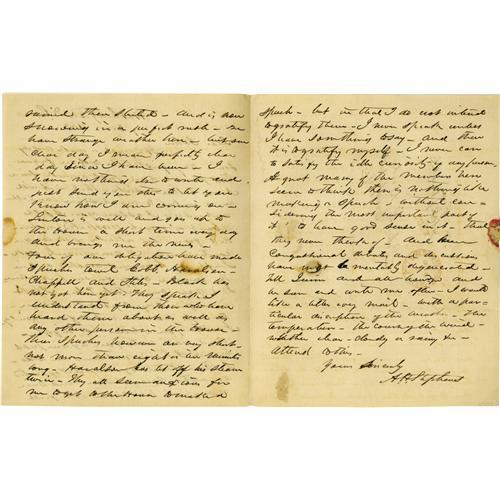 and is now
snowing in a perfect
have strange weather here - but one
clear day I mean perfectly clear
day since I have been here - I
have nothing else to write and
just send you this to let you
know how I am coming on -
Linton is well and goes up to
the House a short time every day
and brings me the news -
Four of our delegation have made
speeches Cobb Haralson -
Chappell and Stiles - Black has
not got there yet - They speak I
understand from those who have
heard them about as well as
any other person in the House
Their speeches however are very short -
not more than eight or ten minutes
long - Haralson has let off his steam
twice - They all seem anxious for
me to get to the House to make a
speech - but in that I do not intend
to gratify them - I never speak unless
I have something to say - and then
it is to gratify myself - I never care
to satisfy the idle curiosity of any person
A great many of the members here
seem to think there is nothing like
making a speech without
the most important part of
it - to have good sense in it - that
they never think of - And
Congressional debates and discussions
have most degenerated
till
be seen and write me often - I would
like a letter every mail - with a
description of the weather - the
temperature - the course of the wind -
whether clear - cloudy or rainy &c -
Attend to this -
Yours Sincerely
A H Stephens